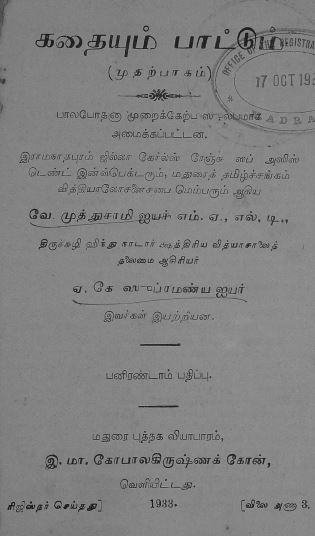 கதையும் பாட்டும்
(முதற்பாகம்)
OFFICE OF THE REGISTRAR
17 OCT 193
MADRA
பாலபோதனா முறைக்கேற்ப ஸுலபமாக
அமைக்கப்பட்டன.
இராமநாதபுரம் ஜில்லா கேர்ல்ஸ் ரேஞ்சு ஸப் அஸிஸ்
டெண்ட் இன்ஸ்பெக்டரும், மதுரைத் தமிழ்ச்சங்கம்
வித்தியாலோசனைசபை மெம்பரும் ஆகிய
வே. முத்துசாமி ஐயர் எம். ஏ., எல், டி.,
திருச்சுழி ஹிந்து நாடார் க்ஷத்திரிய வித்யாசாலைத்
தலைமை ஆசிரியர்
ஏ. கே ஸுப்ரமண்ய ஐயர்
இவர்கள் இயற்றியன.
பனிரண்டாம் பதிப்பு.
மதுரை புத்தக வியாபாரம்,
இ. மா. கோபாலகிருஷ்ணக் கோன்,
வெளியிட்டது.
ரிஜிஸ்தர் செய்தது] 1933. [விலை அணா 3.